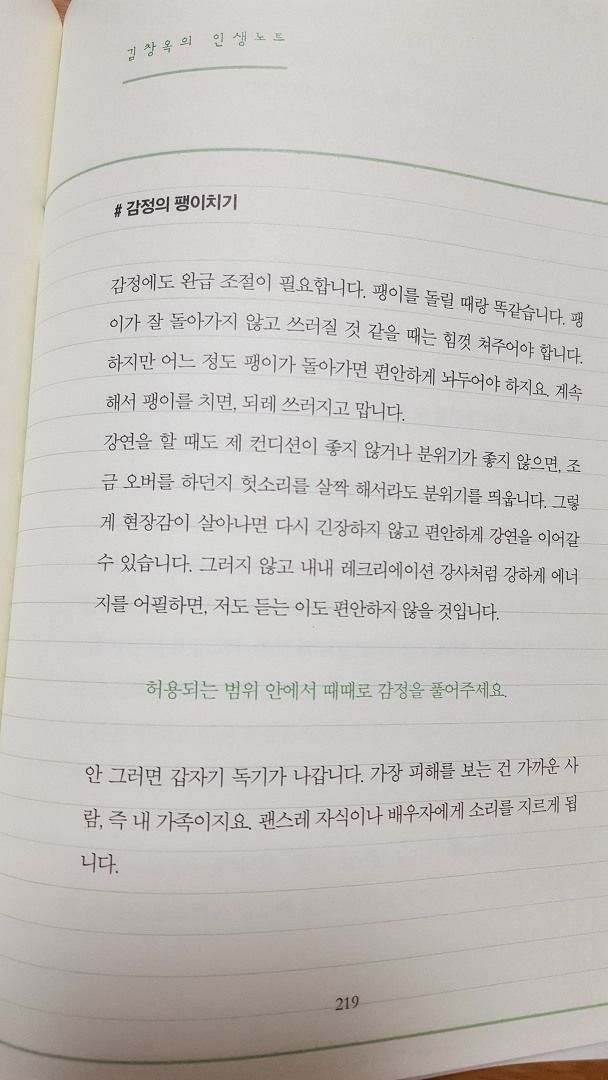 김창옥의 인생노트
# 감정의 팽이치기
감정에도 완급 조절이 필요합니다. 팽이를 돌릴 때랑 똑같습니다. 팽
이가 잘 돌아가지 않고 쓰러질 것 같을 때는 힘껏 쳐주어야 합니다.
하지만 어느 정도 팽이가 돌아가면 편안하게 놔두어야 하지요. 계속
해서 팽이를 치면, 되레 쓰러지고 맙니다.
강연을 할 때도 제 컨디션이 좋지 않거나 분위기가 좋지 않으면, 조
금 오버를 하던지 헛소리를 살짝 해서라도 분위기를 띄웁니다. 그렇
게 현장감이 살아나면 다시 긴장하지 않고 편안하게 강연을 이어갈
수 있습니다. 그러지 않고 내내 레크리에이션 강사처럼 강하게 에너
지를 어필하면, 저도 듣는 이도 편안하지 않을 것입니다.
허용되는 범위 안에서 때때로 감정을 풀어주세요.
안 그러면 갑자기 독기가 나갑니다. 가장 피해를 보는 건 가까운 사
람, 즉 내 가족이지요. 괜스레 자식이나 배우자에게 소리를 지르게 됩
니다.
219